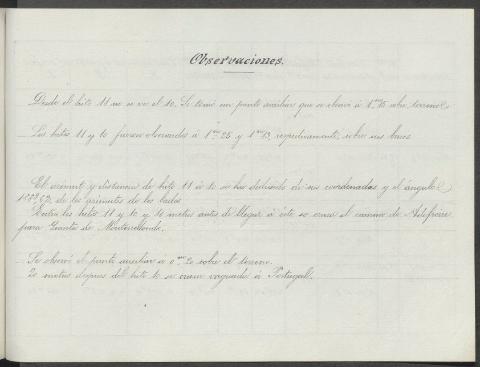 Observaciones.
Desde el hito 11 no se ve el 10. Se tomó un punto auxiliar que se elevó á 1m,15 sobre terreno.
Los hitos 11 y 10 fueron observados á 1m,25 y 1m,13, respectivamente, sobre sus bases
El azimut y distancia de hito 11 á 10 se han deducido de sus coordenadas y el ángulo
de los azimutes de los lados
Entre los hitos 11 y 10 y 14 metros antes de llegar á éste se cruza el camino de
para de
Se observó el punto auxiliar á 0m,20 sobre el terreno.
20 metros despues del hito 10 se cruza vaguada á Portugal.